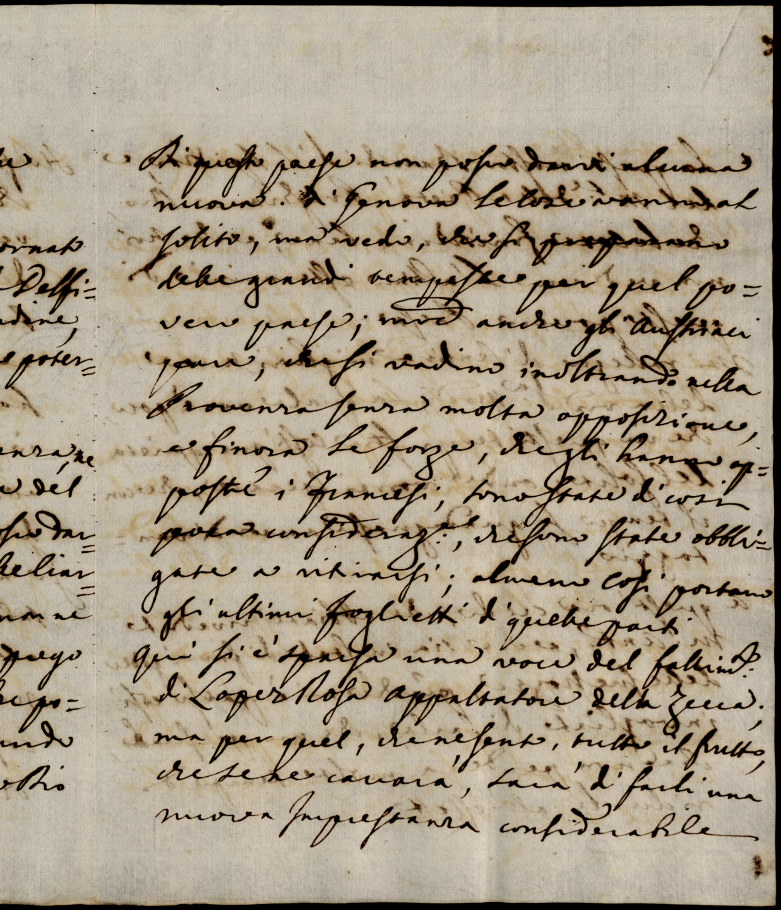 Di questo paese non posso darvi alcuna
nuova. Di Genova le cose vanno al
solito, ma vedo, che si preparano
delle grandi tempeste per quel po=
vero paese; mod anche gli Austriaci
pare, che si vadino inoltrando nella
Provenza senza molta opposizione,
e finora le forze, che gli hanno op=
poste i Francesi, sono state di così
poca consideraz.e, che sono state obbli=
gate a ritirarsi; almeno così portano
gli ultimi foglietti di quelle parti
qui si è sparsa una voce del fallim.to
di Lopez Rosa appaltatore della Zecca;
ma per quel, che ne sento, tutto il frutto,
che se ne caverà, sarà di farli una
nuova Imprestanza considerabile
ornato
Delfi=
udine,
poter=
enza, ne
del
dar=
non ne
prego
po=